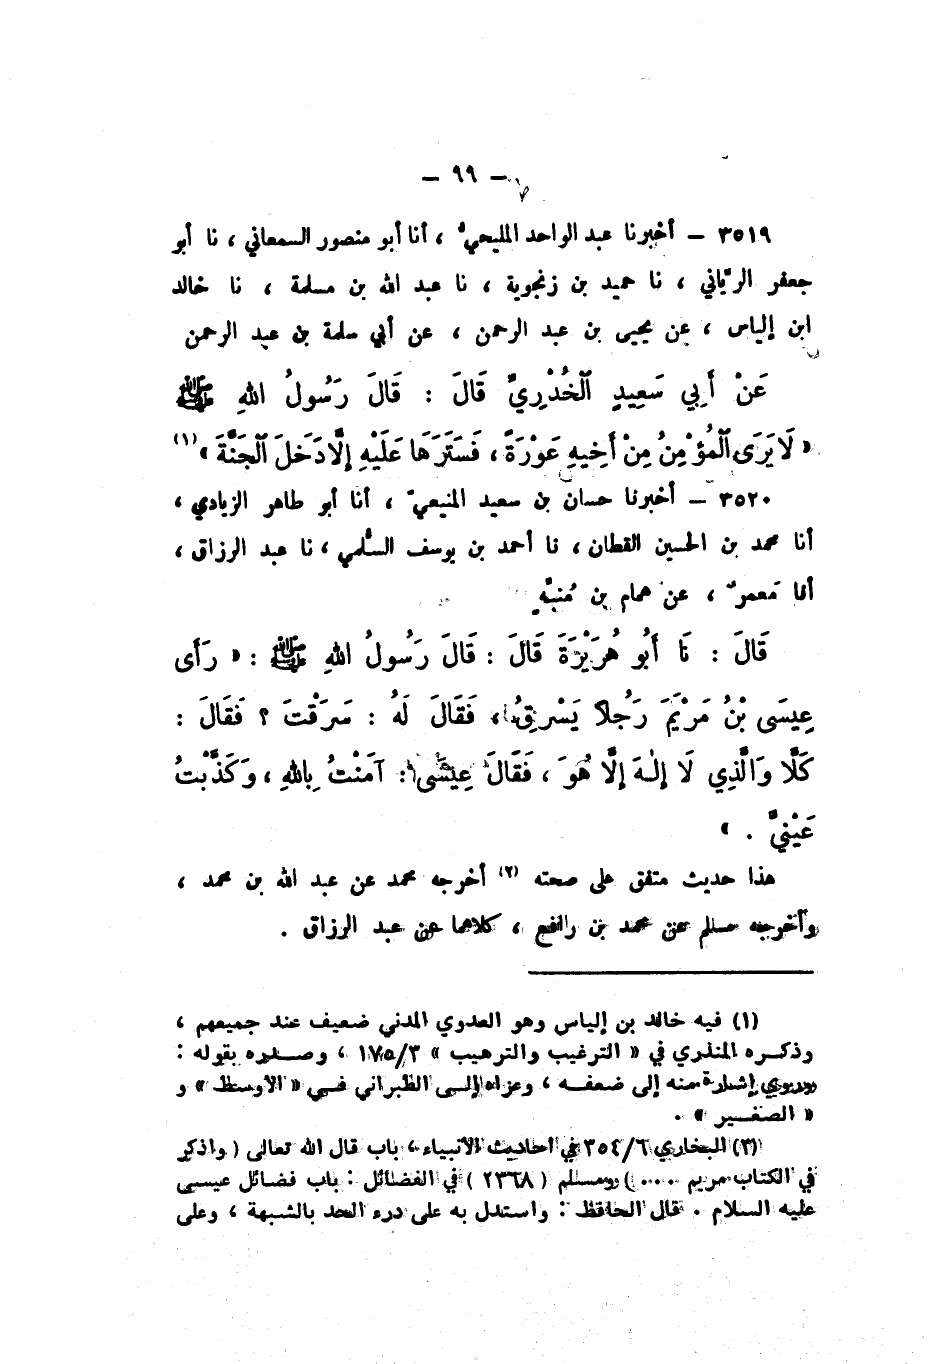 – ٩٩ –
٣٥١٩ – أخبرنا عبد الواحد المليحيُّ ، أنا أبو منصور السمعاني ، نا أبو
جعفر الرّيَّاني ، نا حميد بن زنجوية ، نا عبد الله بن مسلمة ، نا خالد
ابن إلياس ، عن يحيى بن عبد الرحمن ، عن أبي سلمة بن عبد الرحمن
عَنْ أَبِي سَعِيدٍ ٱلْخُدْرِيِّ قَالَ : قَالَ رَسُولُ اللهِ ﷺ
« لَا يَرَى ٱلْمُؤْمِنُ مِنْ أَخِيهِ عَوْرَةً ، فَسَتَرَهَا عَلَيْهِ إِلَّا دَخَلَ ٱلْجَنَّةَ » (١)
٣٥٢٠ – أخبرنا حسان بن سعيد المنيعيّ ، أنا أبو طاهر الزيادي ،
أنا محمد بن الحسين القطان ، نا أحمد بن يوسف السُّلمي ، نا عبد الرزاق ،
أنا مَعمرٌ ، عن همام بن مُنبّهٍ
قَالَ : نَا أَبُو هُرَيْرَةَ قَالَ : قَالَ رَسُولُ اللهِ ﷺ : « رَأَى
عِيسَى بْنُ مَرْيَمَ رَجُلًا يَسْرِقُ ، فَقَالَ لَهُ : سَرَقْتَ ؟ فَقَالَ :
كَلَّا وَالَّذِي لَا إِلٰهَ إِلَّا هُوَ ، فَقَالَ عِيسَى : آمَنْتُ بِاللهِ ، وَكَذَّبْتُ
عَيْنَيَّ . »
هذا حديث متفق على صحته (٢) أخرجه محمد عن عبد الله بن محمد ،
وأخرجه مسلم عن محمد بن رافع ، كلاهما عن عبد الرزاق .
(١) فيه خالد بن إلياس وهو العدوي المدني ضعيف عند جميعهم ،
وذكره المنذري في « الترغيب والترهيب » ١٧٥/٣ ، وصدره بقوله :
وروي إشارة منه إلى ضعفه ، وعزاه إلى الطبراني في « الأوسط » و
« الصغير » .
(٢) البخاري ٣٥٤/٦ في أحاديث الأنبياء ، باب قال الله تعالى ( واذكر
في الكتاب مريم .... ) ومسلم ( ٢٣٦٨ ) في الفضائل : باب فضائل عيسى
عليه السلام . قال الحافظ : واستدل به على درء الحد بالشبهة ، وعلى